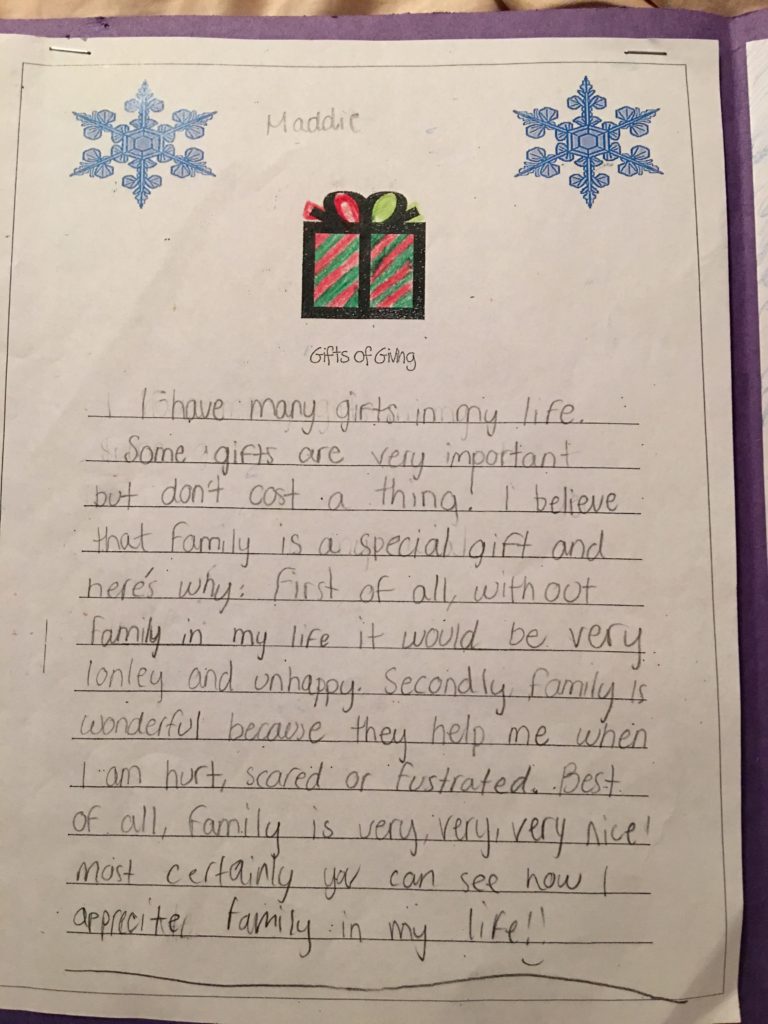 Maddie
Gifts of Giving
I have many gifts in my life.
Some gifts are very important
but don't cost a thing! I believe
that family is a special gift and
here's why: First of all, without
family in my life it would be very
lonley and unhappy. Secondly, family is
wonderful because they help me when
I am hurt, scared or fustrated. Best
of all, family is very, very, very nice!
most certainly you can see how I
apprecite family in my life!!